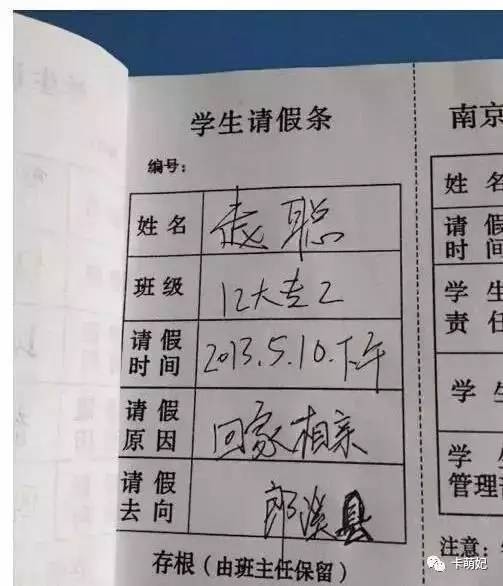 学生请假条
编号：
姓名 戋聪
班级 12大专2
请假时间 2013.5.10.下午
请假原因 回家相亲
请假去向 郎溪县
存根（由班主任保留）
南京
姓名
请假时间
学生
责任
学生
学
管理
注意：
卡萌妃